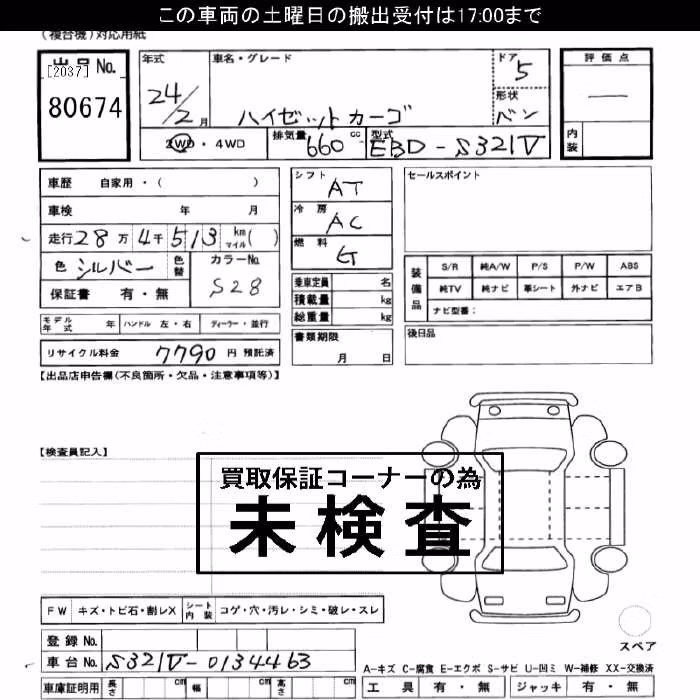 この車両の土曜日の搬出受付は17:00まで
(複合機)対応用紙
出品 No.
[2037]
80674
年式
24/2月
車名・グレード
ハイゼットカーゴ
ドア
5
形状
バン
評価点
—
内装
2WD・4WD
排気量
660 cc
型式
EBD-S321V
車歴 自家用・( )
車検 年 月
走行 28万 4千 513 km マイル( )
色 シルバー 色替
カラーNo.
S28
保証書 有・無
シフト
AT
冷房
AC
燃料
G
乗車定員 名
積載量 kg
総重量 kg
セールスポイント
装備品
S/R 純A/W P/S P/W ABS
純TV 純ナビ 革シート 外ナビ エアB
ナビ型番:
モデル年式 年 ハンドル 左・右 ディーラー・並行
リサイクル料金 7790 円 預託済
書類期限
月 日
後日品
【出品店申告欄(不良箇所・欠品・注意事項等)】
【検査員記入】
買取保証コーナーの為
未検査
FW キズ・トビ石・割レX シート内装 コゲ・穴・汚レ・シミ・破レ・スレ
登録 No.
車台 No. S321V-0134463
車庫証明用 長さ cm 幅 cm 高さ cm
スペア
A-キズ C-腐食 E-エクボ S-サビ U-凹ミ W-補修 XX-交換済
工具 有・無 ジャッキ 有・無